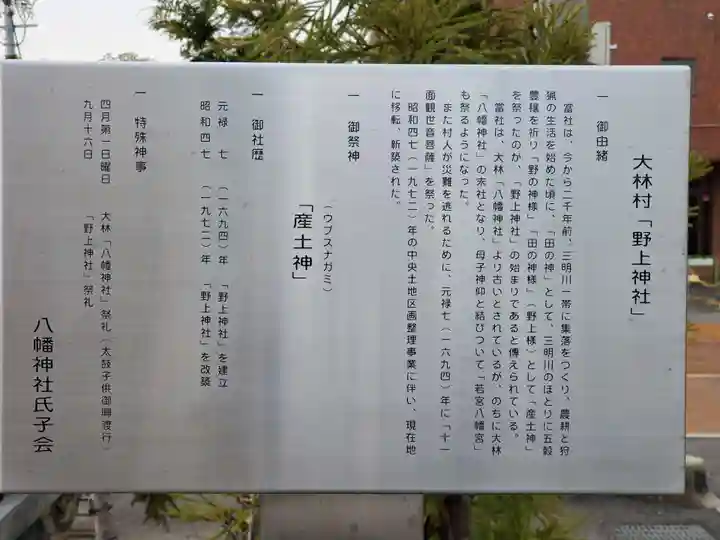 大林村「野上神社」
一 御由緒
當社は、今から二千年前、三明川一帯に集落をつくり、農耕と狩
猟の生活を始めた頃に、「田の神」として、三明川のほとりに五穀
豊穣を祈り「野の神様」「田の神様」(野上様)として「産土神」
を祭ったのが、「野上神社」の始まりであると傳えられている。
當社は、大林「八幡神社」より古いとされているが、のちに大林
「八幡神社」の末社となり、母子神仰と結びついて「若宮八幡宮」
も祭るようになった。
また村人が災難を逃れるために、元禄七(一六九四)年に「十一
面観世音菩薩」を祭った。
昭和四七(一九七二)年の中央土地区画整理事業に伴い、現在地
に移転、新築された。
一 御祭神
(ウブスナガミ)
「産土神」
一 御社歴
元禄 七 (一六九四)年 「野上神社」を建立
昭和四七 (一九七二)年 「野上神社」を改築
一 特殊神事
四月第一日曜日 大林「八幡神社」祭礼(太鼓子供御輿渡行)
九月十六日 「野上神社」祭礼
八幡神社氏子会